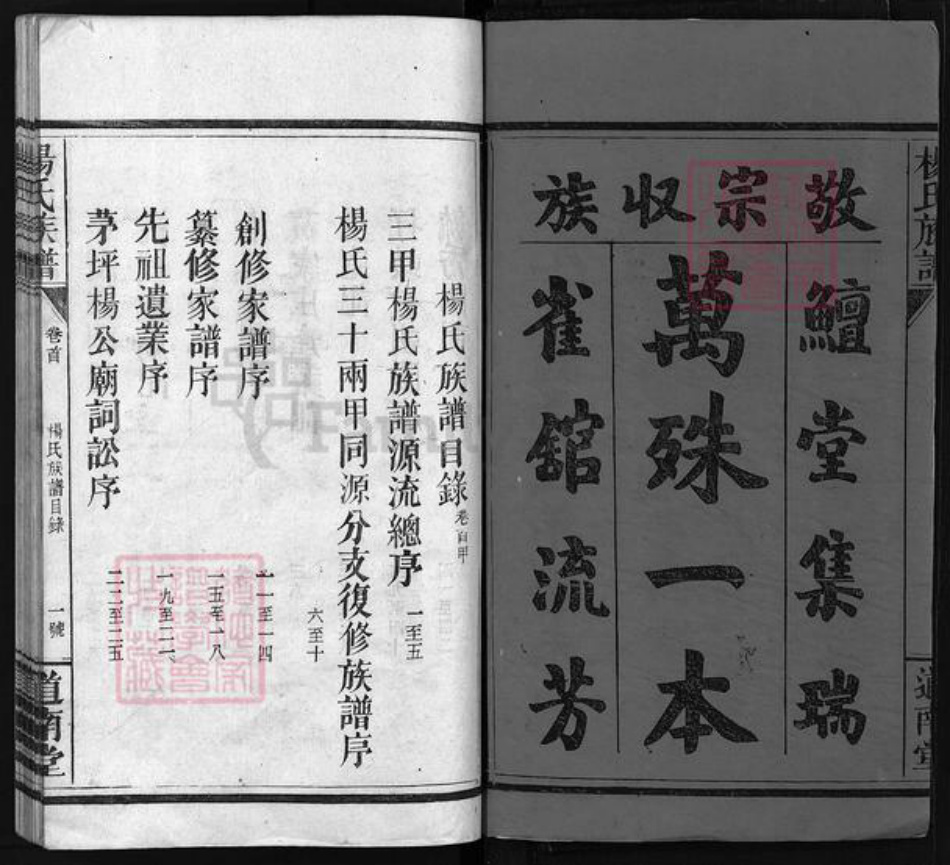 敬宗收族
鱣堂集瑞
萬殊一本
雀舘流芳
楊氏族譜
道南堂
楊氏族譜目錄 卷首甲
三甲楊氏族譜源流總序 一至五
楊氏三十兩甲同源分支復修族譜序 六至十
創修家譜序 一一至一四
纂修家譜序 一五至一八
先祖遺業序 一九至二一
茅坪楊公廟詞訟序 二二至二五
楊氏族譜 卷首 楊氏族譜目錄 一號 道南堂